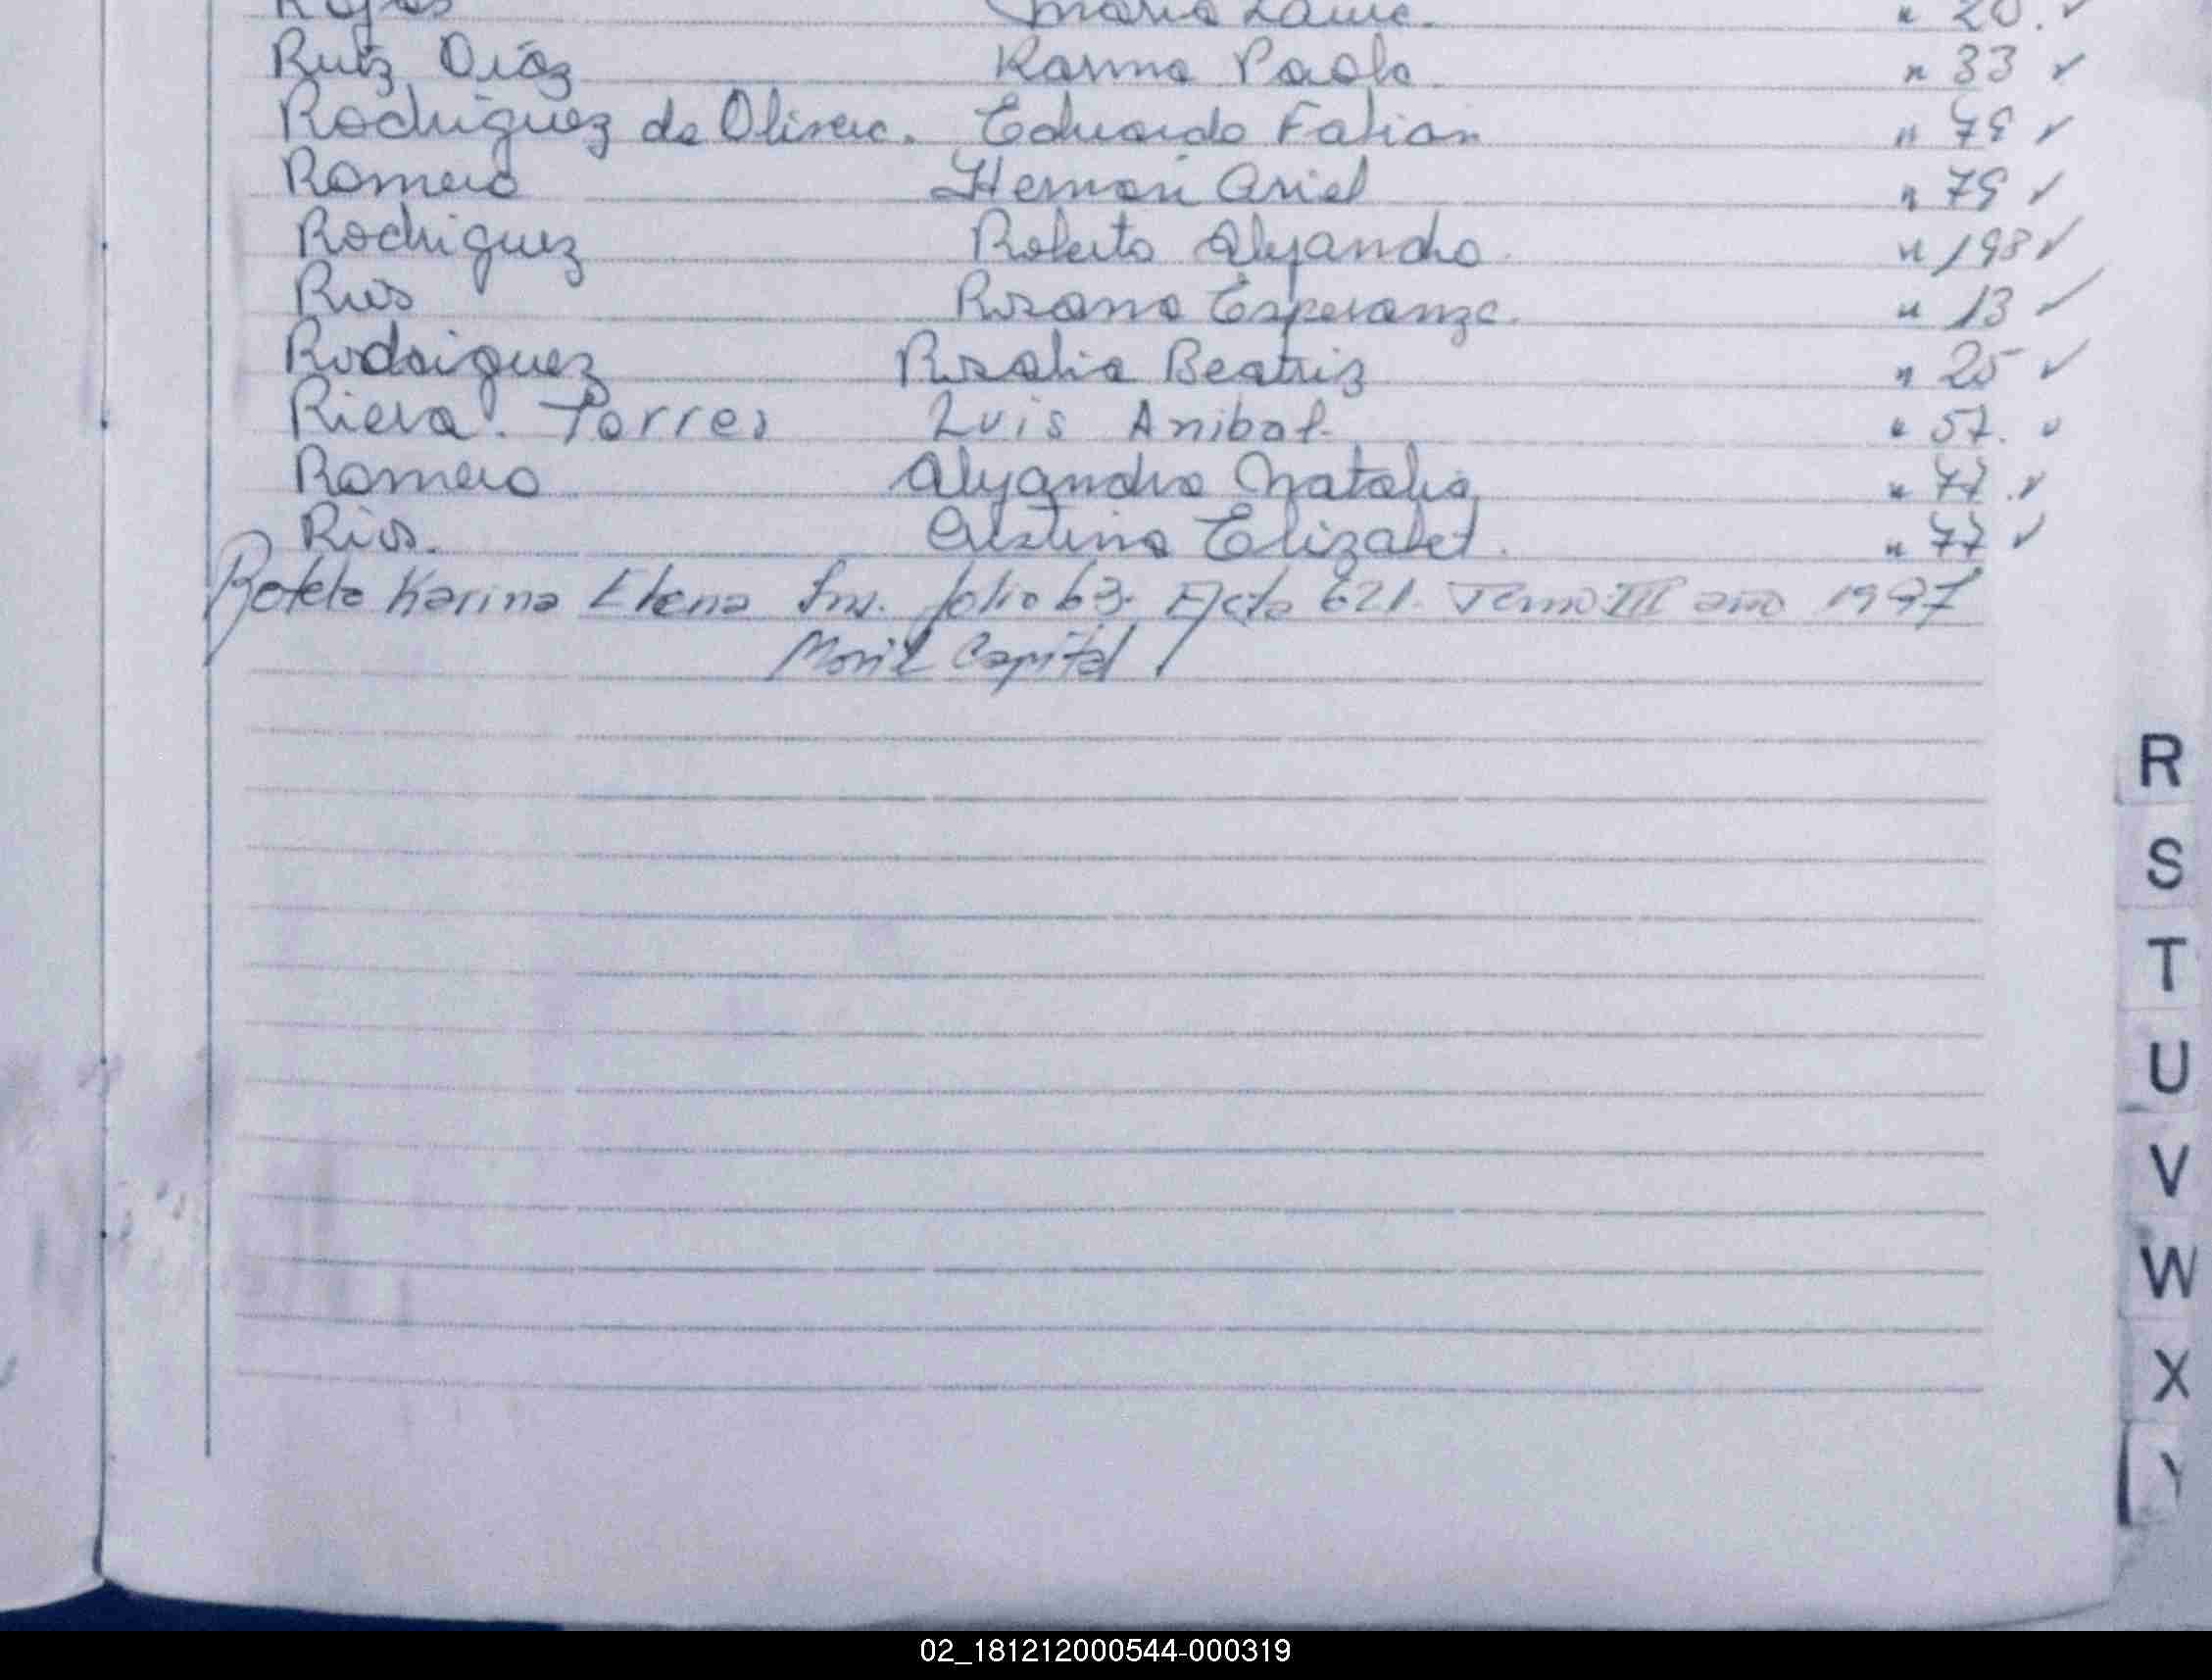 Rojas Maria Laura. " 20. ✓
Ruiz Diaz Karina Paola " 33 ✓
Rodriguez de Olivera. Eduardo Fabian " 78 ✓
Romero Hernan Ariel " 79 ✓
Rodriguez Roberto Alejandro. " 198 ✓
Rios Rosana Esperanza. " 13 ✓
Rodriguez Rosalia Beatriz " 25 ✓
Riera. Torres Luis Anibal. " 57. ✓
Romero Alejandra Natalia " 77. ✓
Rios. Cristina Elizabet. " 77 ✓
Karina Elena Ins. folio 63. Acta 621. Tomo III año 1997
Movil Capital
R
S
T
U
V
W
X
Y
02_181212000544-000319